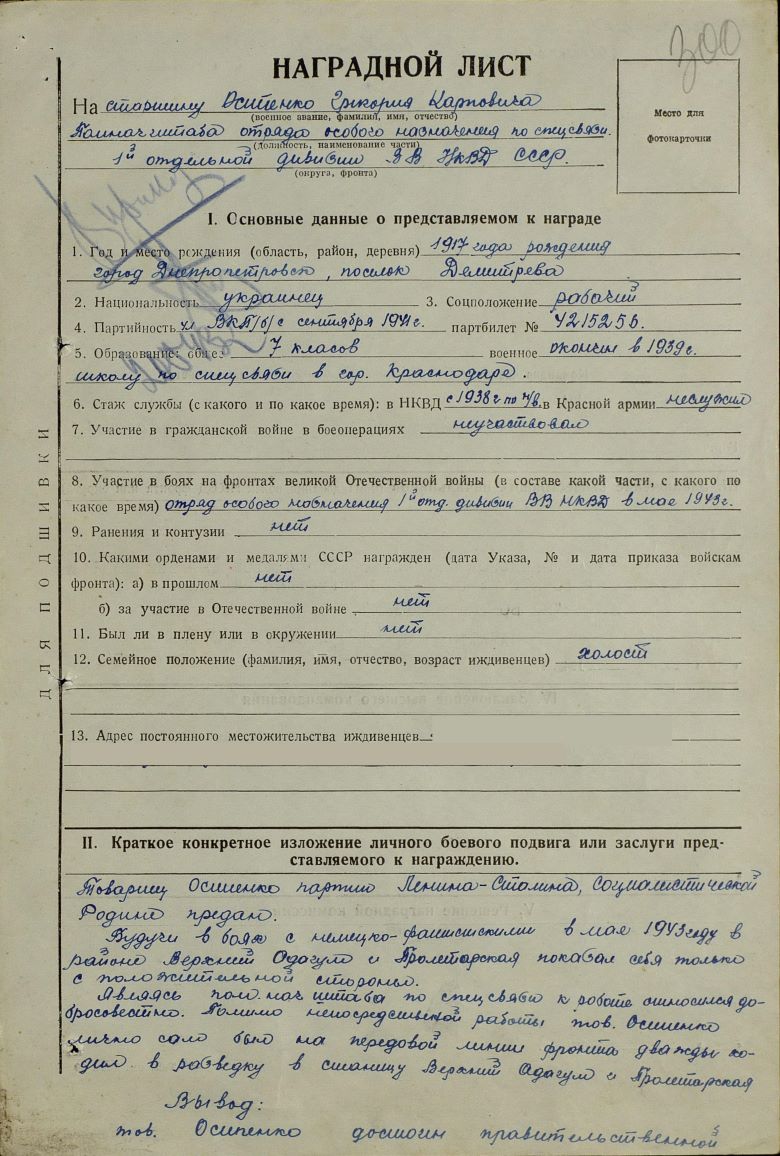 300
НАГРАДНОЙ ЛИСТ
На старшину Осипенко Григория Карповича
(военное звание, фамилия, имя, отчество)
Помначштаба отряда особого назначения по спецсвязи
(должность, наименование части)
1й отдельной дивизии ВВ НКВД СССР.
(округа, фронта)
Место для
фотокарточки
I. Основные данные о представляемом к награде
1. Год и место рождения (область, район, деревня) 1917 года рождения
город Днепропетровск, поселок
2. Национальность украинец 3. Соцположение рабочий
4. Партийность чл ВКП/б/ с сентября 1941 г. партбилет № 4215256.
5. Образование: общее 7 класов военное окончил в 1939 г.
школу по спецсвязи в гор. Краснодаре.
6. Стаж службы (с какого и по какое время): в НКВД с 1938 г по н/в. в Красной армии неслужил
7. Участие в гражданской войне в боеоперациях неучаствовал
8. Участие в боях на фронтах великой Отечественной войны (в составе какой части, с какого по
какое время) отряд особого назначения 1й отд. дивизии ВВ НКВД в мае 1943 г.
9. Ранения и контузии нет
10. Какими орденами и медалями СССР награжден (дата Указа, № и дата приказа войскам
фронта): а) в прошлом нет
б) за участие в Отечественной войне нет
11. Был ли в плену или в окружении нет
12. Семейное положение (фамилия, имя, отчество, возраст иждивенцев) холост
13. Адрес постоянного местожительства иждивенцев
ДЛЯ ПОДШИВКИ
II. Краткое конкретное изложение личного боевого подвига или заслуги пред-
ставляемого к награждению.
Товарищ Осипенко партии Ленина-Сталина, Социалистической
Родине предан.
Будучи в боях с немецко-фашистскими в мае 1943 году в
районе Верхний Адагум и Пролетарская показал себя только
с положительной стороны.
Являясь пом. нач штаба по спецсвязи к работе относился до-
бросовестно. Помимо непосредственной работы тов. Осипенко
лично сам был на передовой линии фронта дважды хо-
дил в разведку в станицу Верхний Адагум и Пролетарская
Вывод:
тов. Осипенко достоин правительственной